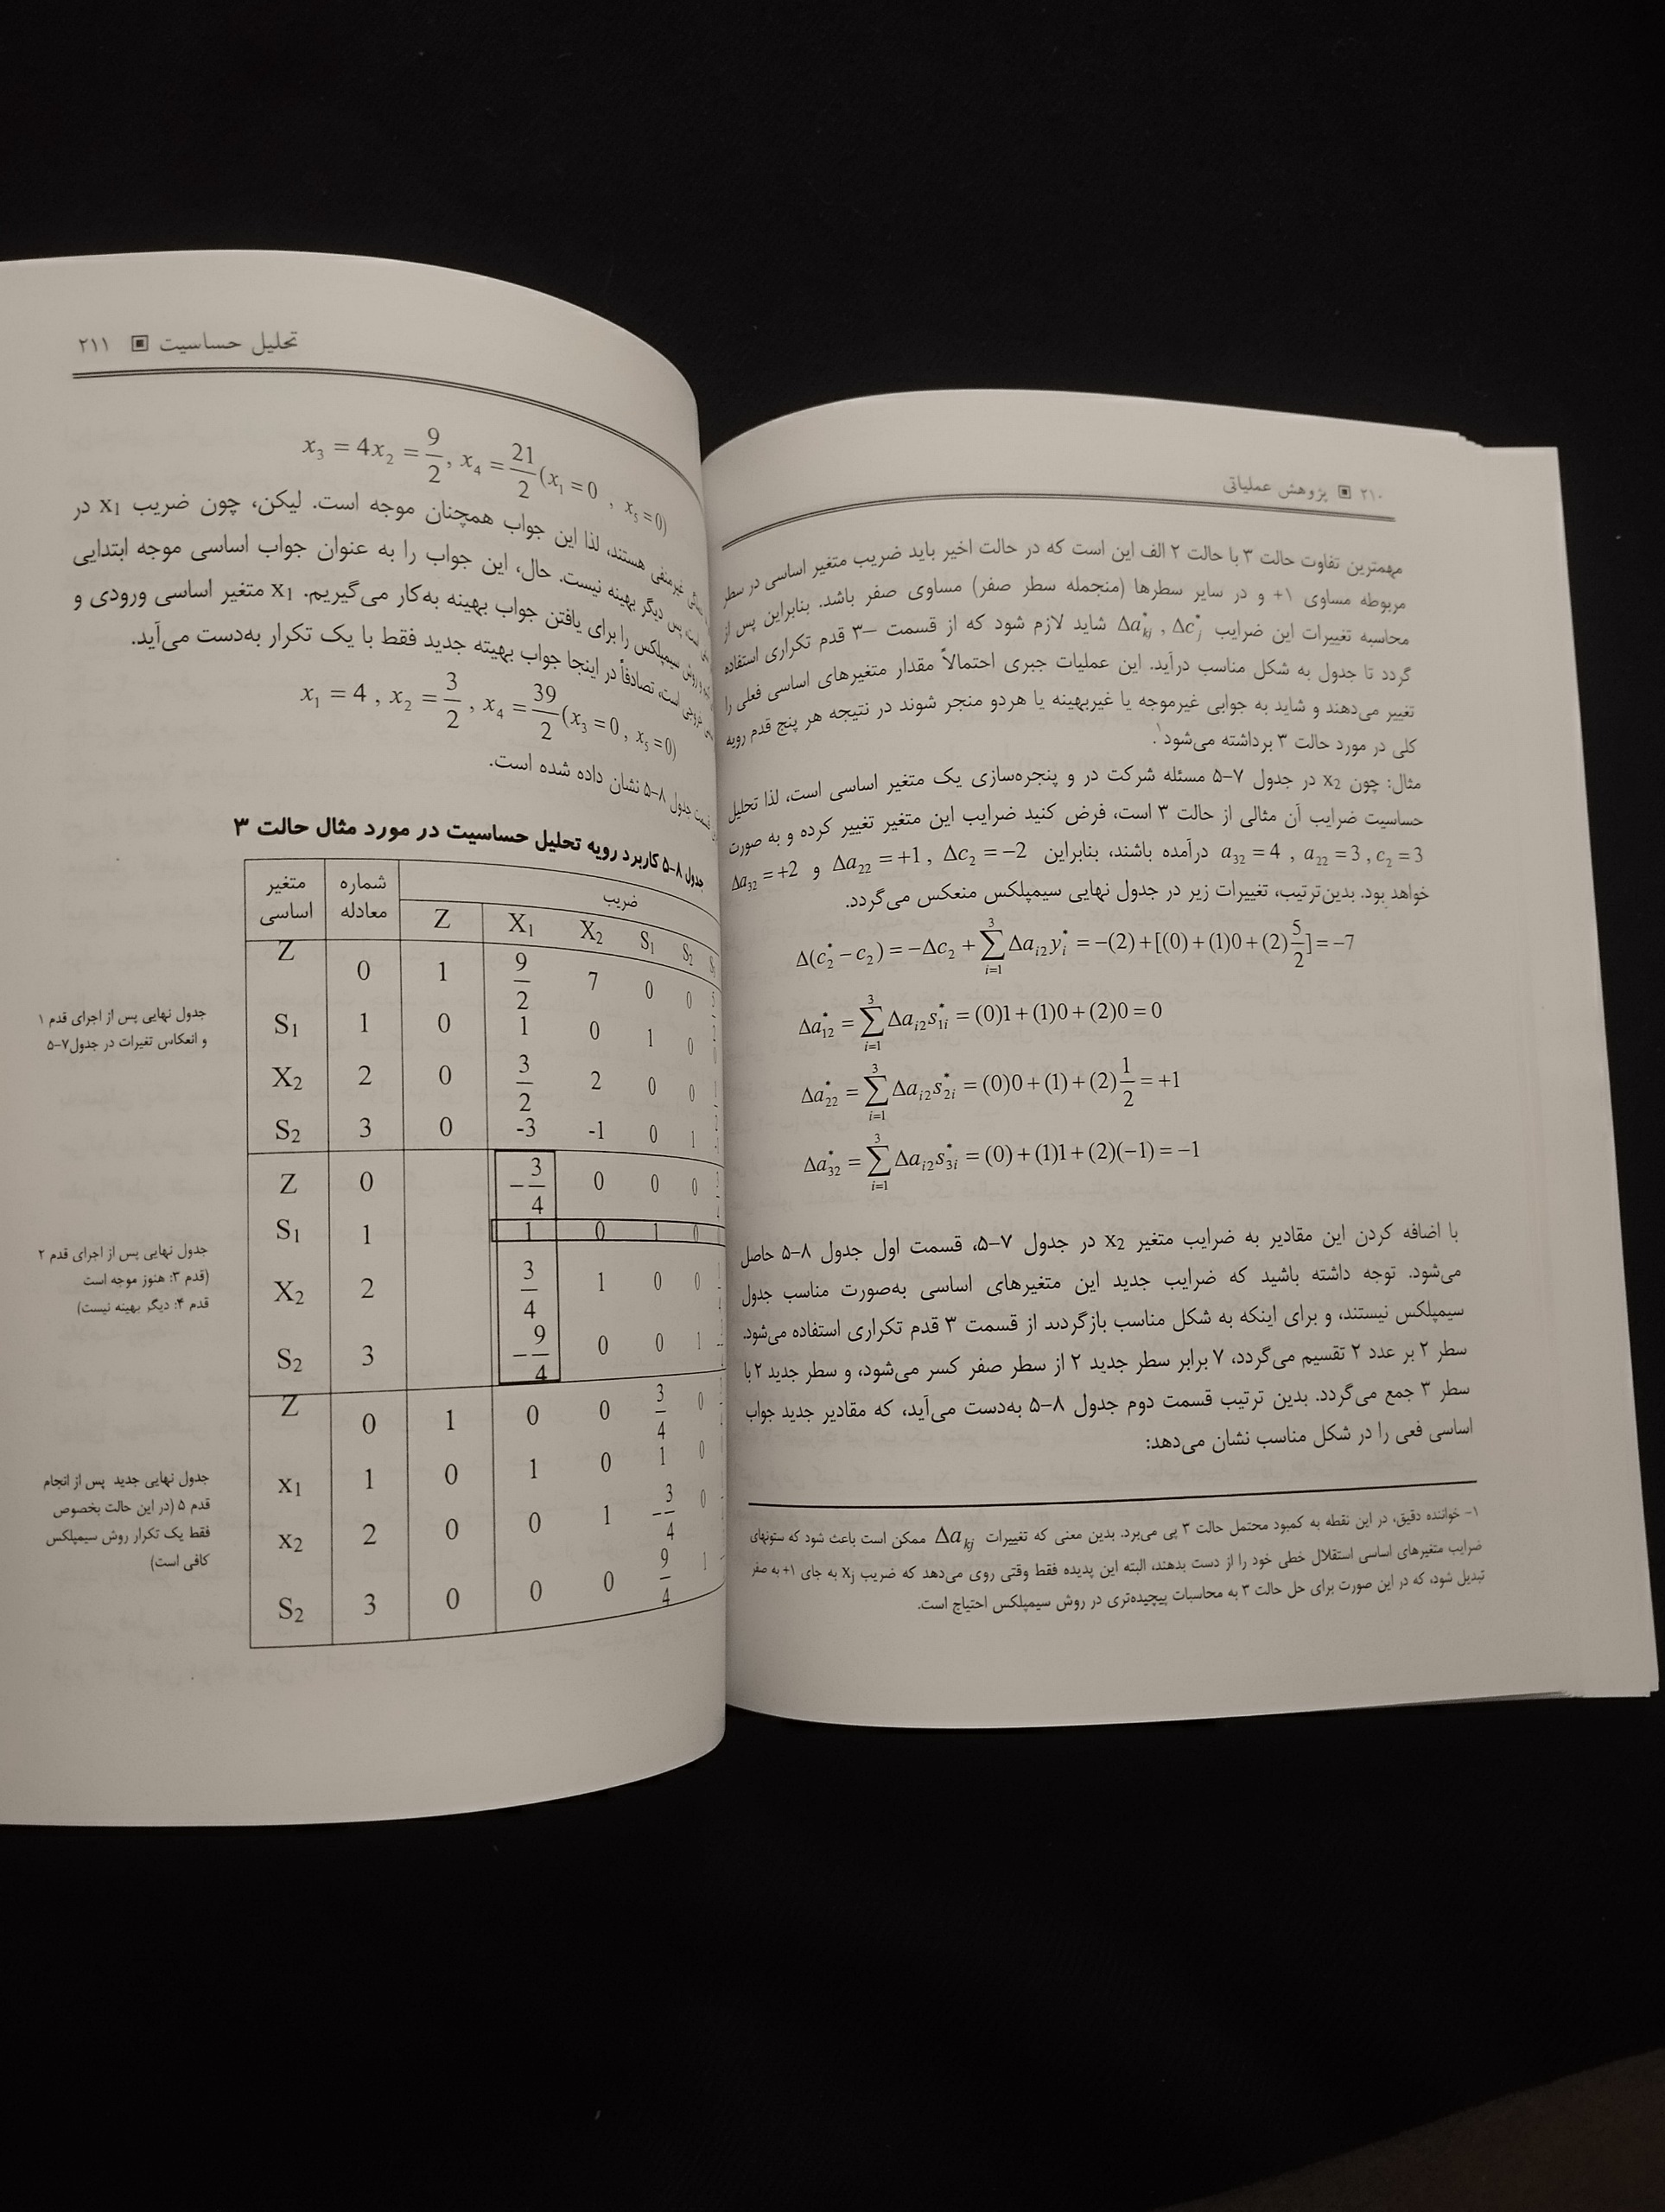 ۲۱۰ ▣ پژوهش عملیاتی
مهمترین تفاوت حالت ۳ با حالت ۲ الف این است که در حالت اخیر باید ضریب متغیر اساسی در سطر
مربوطه مساوی ۱+ و در سایر سطرها (منجمله سطر صفر) مساوی صفر باشد. بنابراین پس از
محاسبه تغییرات این ضرایب Δa*kj , Δc*j شاید لازم شود که از قسمت –۳ قدم تکراری استفاده
گردد تا جدول به شکل مناسب درآید. این عملیات جبری احتمالاً مقدار متغیرهای اساسی فعلی را
تغییر می‌دهند و شاید به جوابی غیرموجه یا غیربهینه یا هردو منجر شوند در نتیجه هر پنج قدم رویه
کلی در مورد حالت ۳ برداشته می‌شود۱.
مثال: چون x2 در جدول ۷-۵ مسئله شرکت در و پنجره‌سازی یک متغیر اساسی است، لذا تحلیل
حساسیت ضرایب آن مثالی از حالت ۳ است، فرض کنید ضرایب این متغیر تغییر کرده و به صورت
a32 = 4 , a22 = 3 , c2 = 3 درآمده باشند، بنابراین Δa22 = +1 , Δc2 = −2 و Δa32 = +2
خواهد بود. بدین‌ترتیب، تغییرات زیر در جدول نهایی سیمپلکس منعکس می‌گردد.
Δ(c*2 − c2) = −Δc2 + ∑(i=1..3) Δai2 y*i = −(2) + [(0) + (1)0 + (2)5/2] = −7
Δa*12 = ∑(i=1..3) Δai2 s*1i = (0)1 + (1)0 + (2)0 = 0
Δa*22 = ∑(i=1..3) Δai2 s*2i = (0)0 + (1) + (2)1/2 = +1
Δa*32 = ∑(i=1..3) Δai2 s*3i = (0) + (1)1 + (2)(−1) = −1
با اضافه کردن این مقادیر به ضرایب متغیر x2 در جدول ۷-۵، قسمت اول جدول ۸-۵ حاصل
می‌شود. توجه داشته باشید که ضرایب جدید این متغیرهای اساسی به‌صورت مناسب جدول
سیمپلکس نیستند، و برای اینکه به شکل مناسب بازگردند از قسمت ۳ قدم تکراری استفاده می‌شود.
سطر ۲ بر عدد ۲ تقسیم می‌گردد، ۷ برابر سطر جدید ۲ از سطر صفر کسر می‌شود، و سطر جدید ۲ با
سطر ۳ جمع می‌گردد. بدین ترتیب قسمت دوم جدول ۸-۵ به‌دست می‌آید، که مقادیر جدید جواب
اساسی فعی را در شکل مناسب نشان می‌دهد:
۱- خواننده دقیق، در این نقطه به کمبود محتمل حالت ۳ پی می‌برد. بدین معنی که تغییرات Δakj ممکن است باعث شود که ستونهای
ضرایب متغیرهای اساسی استقلال خطی خود را از دست بدهند، البته این پدیده فقط وقتی روی می‌دهد که ضریب xj به جای ۱+ به صفر
تبدیل شود، که در این صورت برای حل حالت ۳ به محاسبات پیچیده‌تری در روش سیمپلکس احتیاج است.
تحلیل حساسیت ▣ ۲۱۱
x3 = 4x2 = 9/2, x4 = 21/2 (x1 = 0 , x5 = 0)
غیرمنفی هستند، لذا این جواب همچنان موجه است. لیکن، چون ضریب x1 در
است پس دیگر بهینه نیست. حال، این جواب را به عنوان جواب اساسی موجه ابتدایی
روش سیمپلکس را برای یافتن جواب بهینه به‌کار می‌گیریم. x1 متغیر اساسی ورودی و
خروجی است، تصادفاً در اینجا جواب بهیته جدید فقط با یک تکرار به‌دست می‌آید.
x1 = 4 , x2 = 3/2 , x4 = 39/2 (x3 = 0 , x5 = 0)
قسمت جدول ۸-۵ نشان داده شده است.
جدول ۸-۵ کاربرد رویه تحلیل حساسیت در مورد مثال حالت ۳
متغیر اساسی شماره معادله ضریب
Z X1 X2 S1 S2
Z 0 1 9/2 7 0 0
S1 1 0 1 0 1 0
X2 2 0 3/2 2 0 0
S2 3 0 -3 -1 0 1
Z 0 −3/4 0 0 0
S1 1 1 0 1 0
X2 2 3/4 1 0 0
S2 3 −9/4 0 0 1
Z 0 1 0 0 3/4 0
x1 1 0 1 0 1 0
x2 2 0 0 1 −3/4 0
S2 3 0 0 0 9/4 1
جدول نهایی پس از اجرای قدم ۱
و انعکاس تغیرات در جدول۷-۵
جدول نهایی پس از اجرای قدم ۲
(قدم ۳: هنوز موجه است
قدم ۴: دیگر بهینه نیست)
جدول نهایی جدید پس از انجام
قدم ۵ (در این حالت بخصوص
فقط یک تکرار روش سیمپلکس
کافی است)